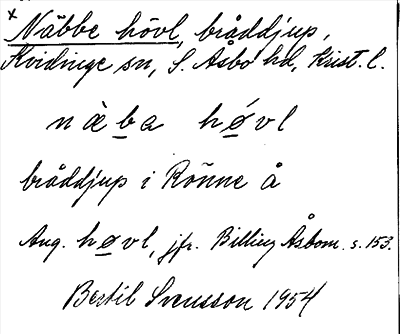 x Näbbe hövl, bråddjup,
Kvidinge sn, S. Åsbo hd, Krist. l.
næ̀ba hǿvl
bråddjup i Rönne å
Ang. høvl, jfr. Billing Åsbom. s. 153.
Bertil Svensson 1954